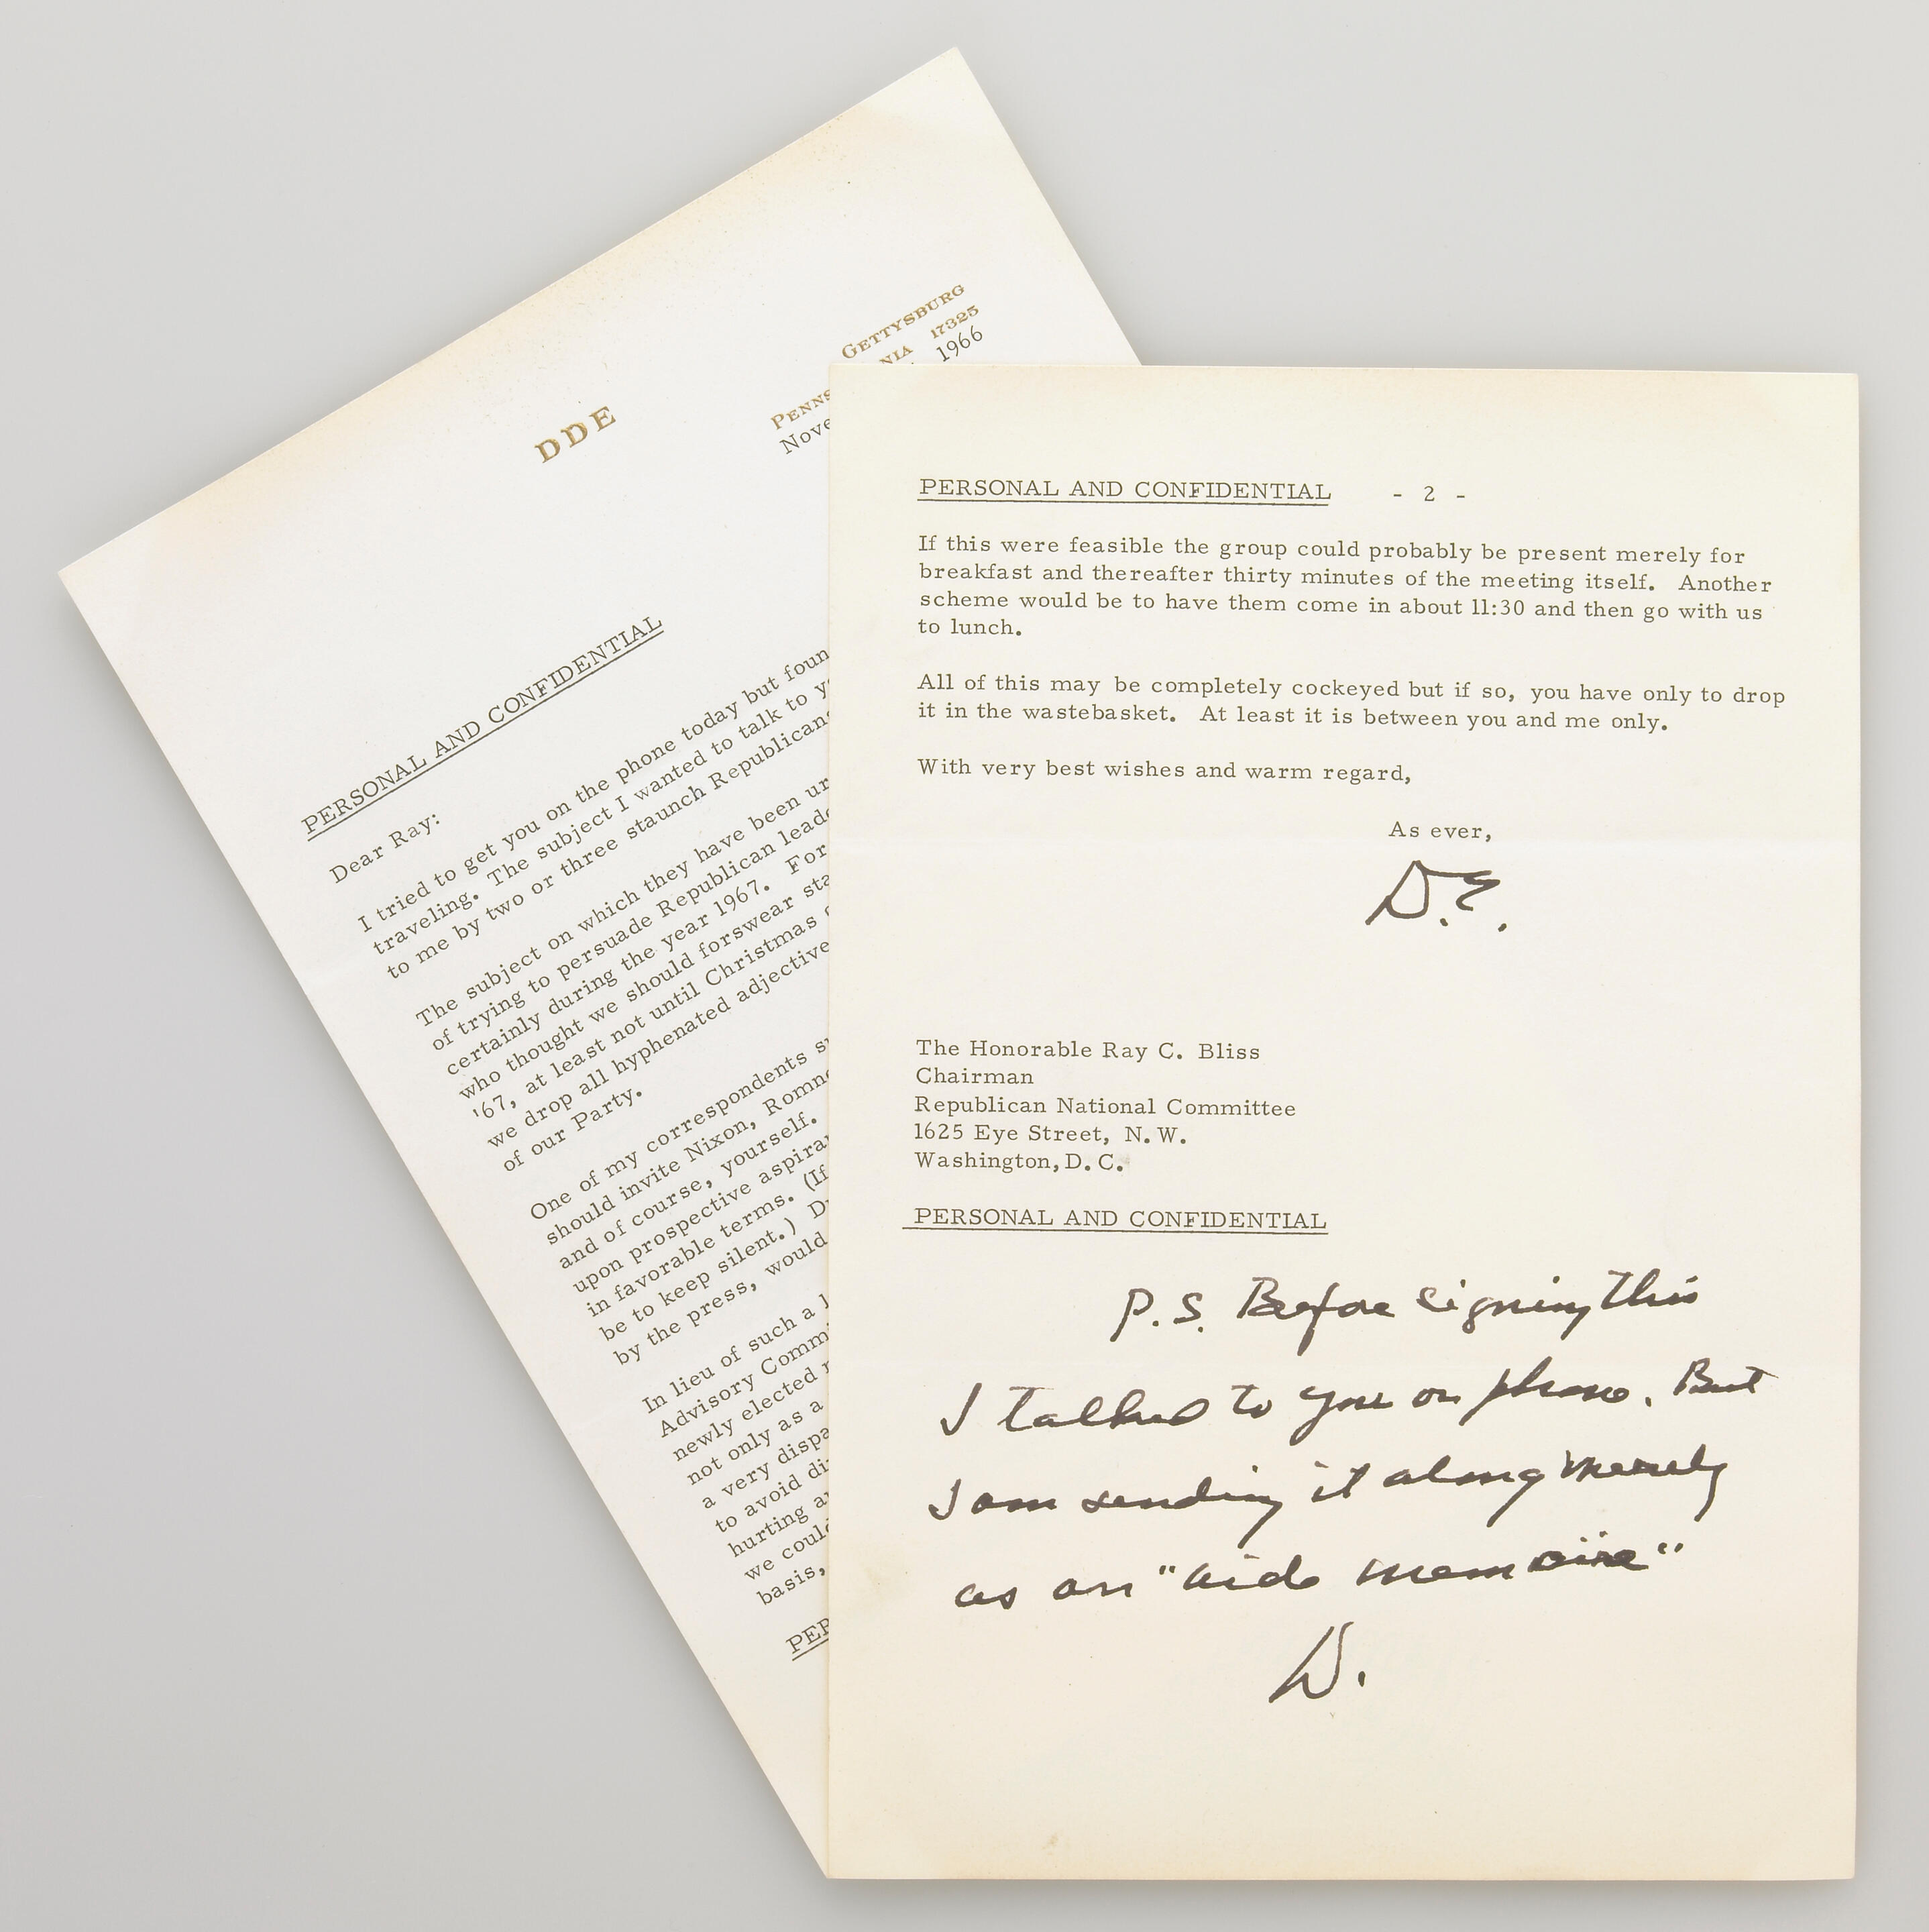 DDE
GETTYSBURG
17325
1966
PERSONAL AND CONFIDENTIAL
Dear Ray:
I tried to get you on the phone today but
traveling. The subject I wanted to talk to
to me by two or three staunch Republicans
The subject on which they have been
of trying to persuade Republican
certainly during the year 1967. For
who thought we should forswear
'67, at least not until Christmas
we drop all hyphenated adjective
of our Party.
One of my correspondents
should invite Nixon,
and of course, yourself.
upon prospective
in favorable terms. (If
be to keep silent.)
by the press, would
In lieu of such a
Advisory
newly elected
not only as a
a very
to avoid
hurting
we could
basis,
PERSONAL AND CONFIDENTIAL - 2 -
If this were feasible the group could probably be present merely for
breakfast and thereafter thirty minutes of the meeting itself. Another
scheme would be to have them come in about 11:30 and then go with us
to lunch.
All of this may be completely cockeyed but if so, you have only to drop
it in the wastebasket. At least it is between you and me only.
With very best wishes and warm regard,
As ever,
D.E.
The Honorable Ray C. Bliss
Chairman
Republican National Committee
1625 Eye Street, N.W.
Washington, D.C.
PERSONAL AND CONFIDENTIAL
P.S. Before signing this
I talked to you on phone. But
I am sending it along merely
as an "aide memoire"
D.